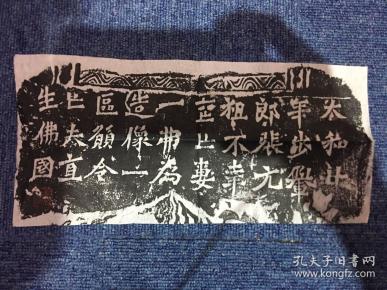 太和廿
年步轝
郎張元
祖不幸
喪亡妻
一弗為
造像一
區願令
亡夫直
生佛國
孔夫子旧书网